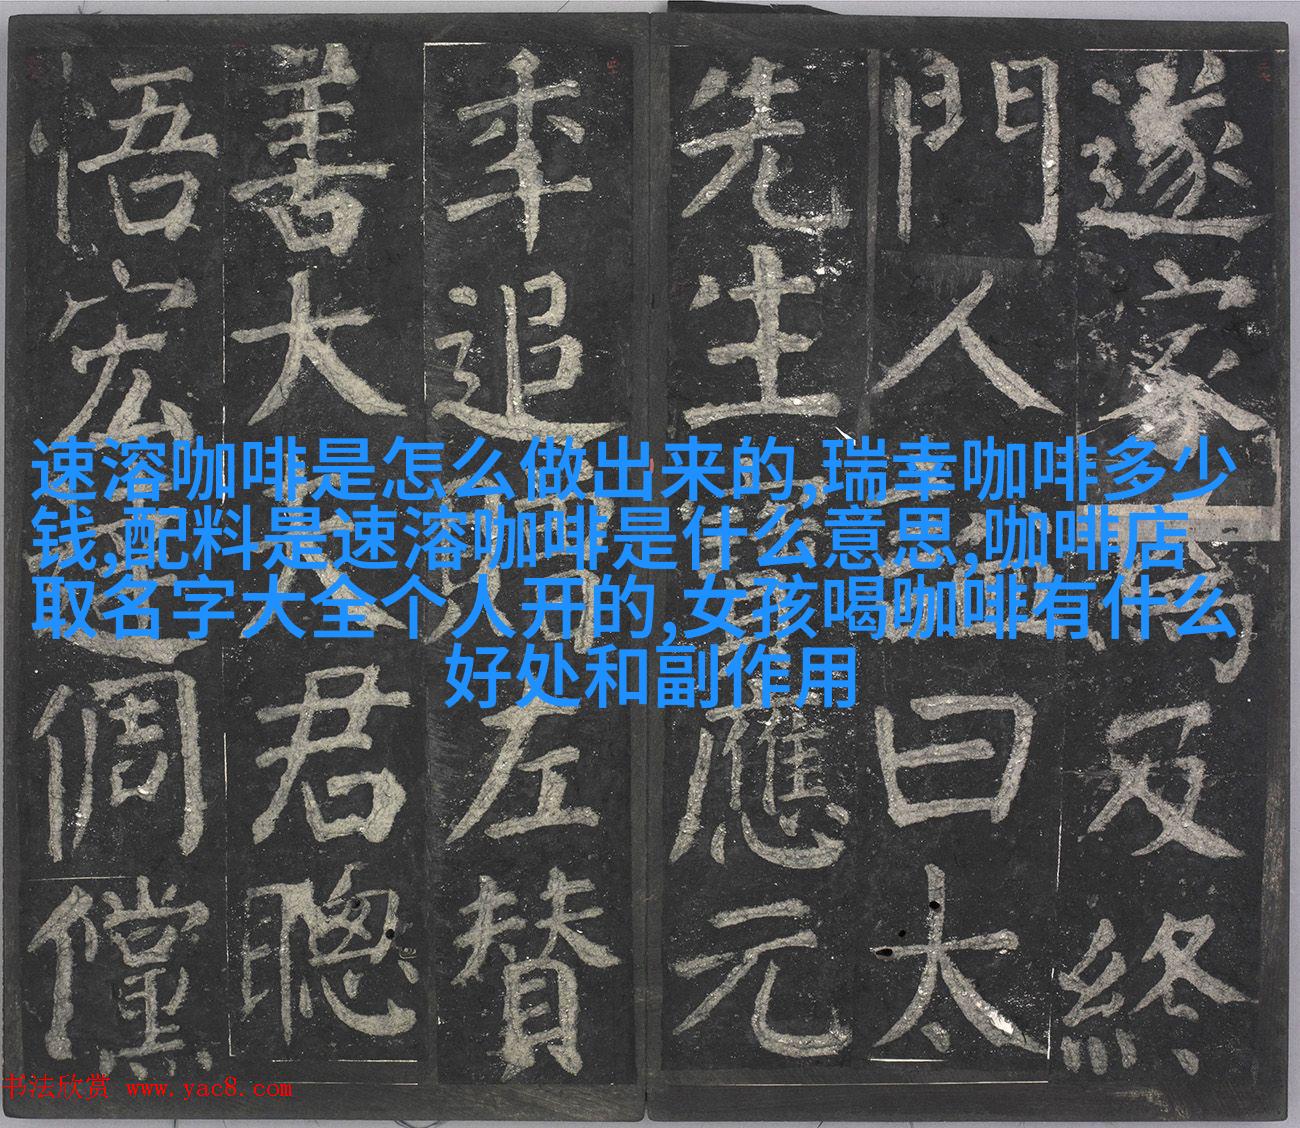 遂家及終
門人曰太
先生應元
年追左贊
善大夫君聰
悟宏遠倜儻
速溶咖啡是怎么做出来的,瑞幸咖啡多少
钱,配料是速溶咖啡是什么意思,咖啡店
取名字大全个人开的,女孩喝咖啡有什么
好处和副作用
书法欣赏 www.yac8.com